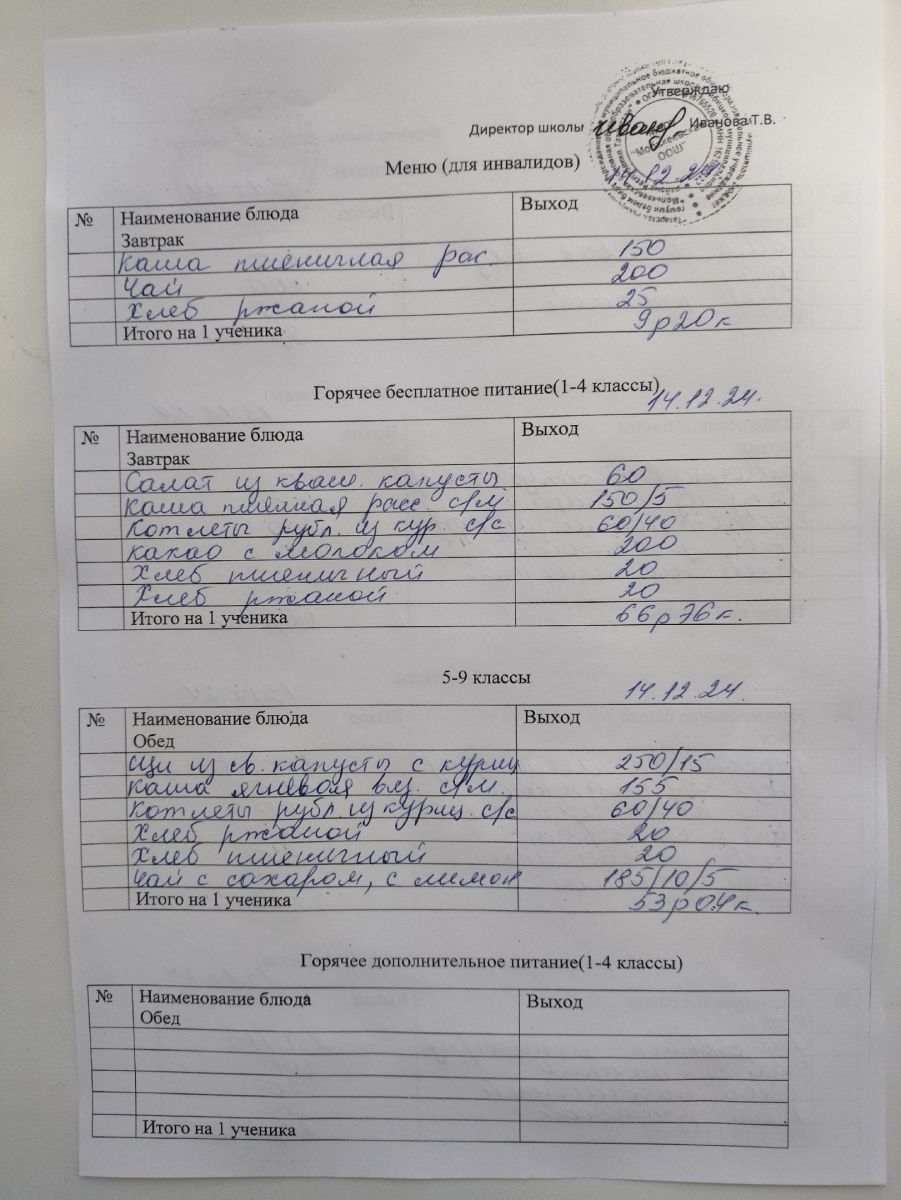 Утверждаю
Директор школы Иванова Т.В.
Меню (для инвалидов) 14.12.24
№ Наименование блюда Выход
Завтрак
Каша пшеничная рас. 150
Чай 200
Хлеб ржаной 25
Итого на 1 ученика 9р20к
Горячее бесплатное питание(1-4 классы) 14.12.24.
№ Наименование блюда Выход
Завтрак
Салат из кваш. капусты 60
Каша пшенная расс. с/м 150/5
Котлеты рубл. из кур. с/с 60/40
Какао с молоком 200
Хлеб пшеничный 20
Хлеб ржаной 20
Итого на 1 ученика 66р76к.
5-9 классы 14.12.24.
№ Наименование блюда Выход
Обед
Щи из св. капусты с куриц 250/15
Каша ячневая вяз. с/м. 155
Котлеты рубл. из куриц. с/с 60/40
Хлеб ржаной 20
Хлеб пшеничный 20
Чай с сахаром, с лимон 185/10/5
Итого на 1 ученика 53р04к.
Горячее дополнительное питание(1-4 классы)
№ Наименование блюда Выход
Обед
Итого на 1 ученика